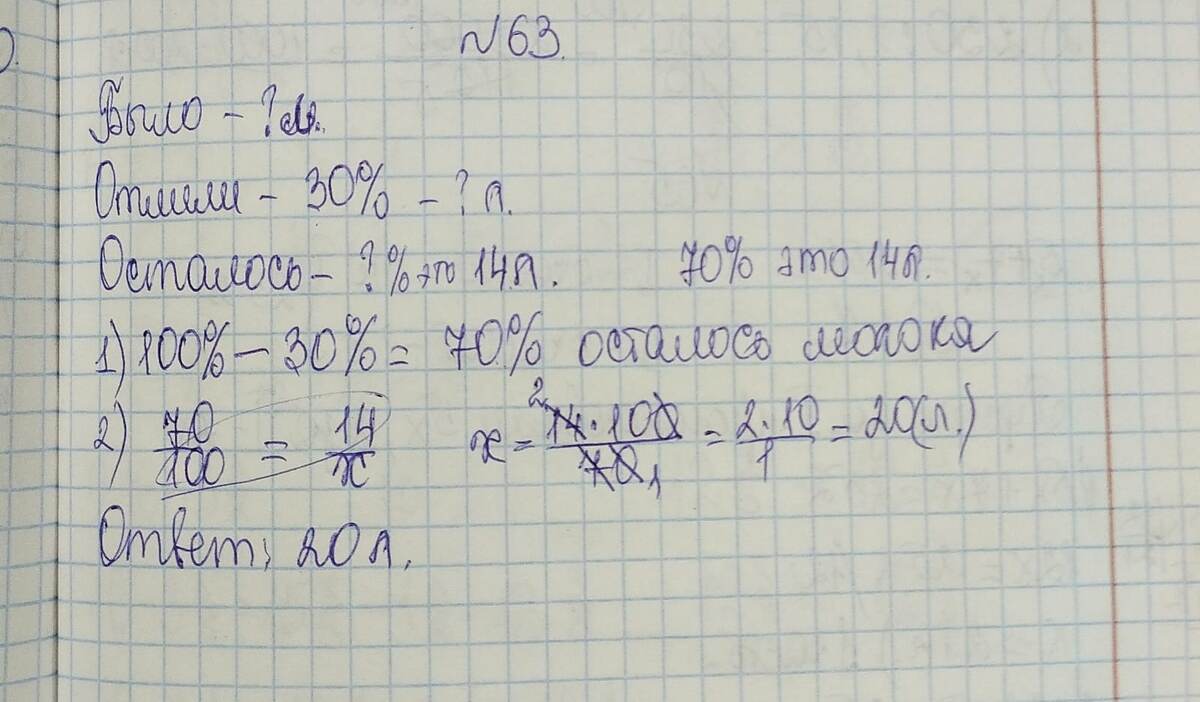 №63.
Было - ? л.
Отлили - 30% - ? л.
Осталось - ? % это 14 л. 70% это 14 л.
1) 100% - 30% = 70% осталось молока
2) 70/100 = 14/x x = 14·100/70 = 2·10/1 = 20(л.)
Ответ: 20 л.